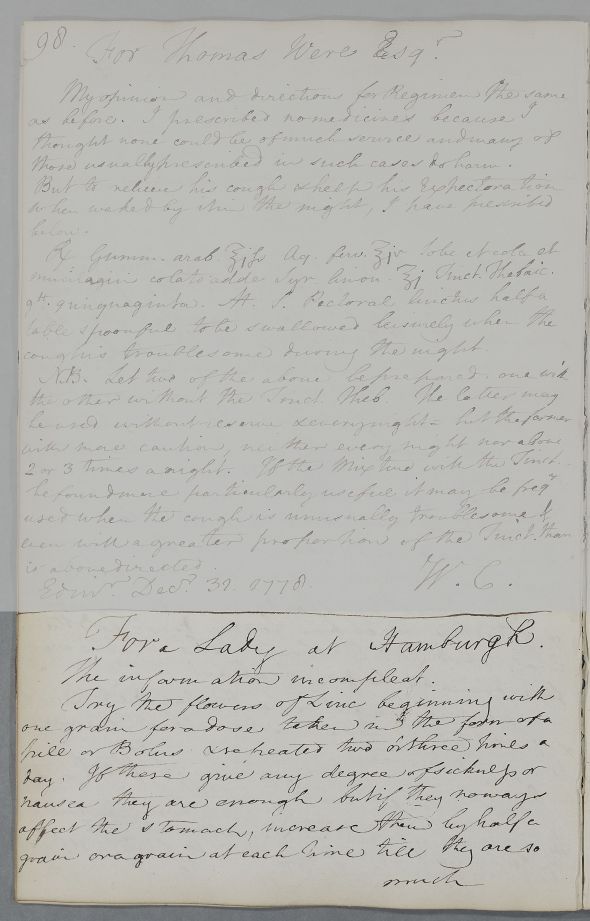 98.
For Thomas Were Esqr.
My opinion and directions for Regimen the same
as before. I prescribed no medicines because I
thought none could be of much service and many of
those usually prescribed in such cases do harm.
But to relieve his cough & help his Expectoration
when waked by it in the night, I have prescribed
below.
℞ Gumm. arab. ʒjfs Aq. ferv. ʒjv solve et cola et
mucilagin colato adde Syr limon. ʒj Tinct. Thebaic.
gtt. quinquaginta. M. S. Pectoral linctus half a
table spoonful to be swallowed leisurely when the
cough is troublesome during the night.
N.B. Let two of the above be prepared. one with
the other without the Tinct Theb. The latter may
be used without reserve & every night - but the former
with more caution, neither every night nor above
2 or 3 times a night. If the Mixture with the Tinct.
be found more particularly useful it may be freqt
used when the cough is unusually troublesome &
even with a greater proportion of the Tinct. than
is above directed.
Edinr. Decr. 31. 1778. W. C.
For a Lady at Hamburgh.
The information incompleat.
Try the flowers of Zinc beginning with
one grain for a dose taken in the form of a
pill or Bolus & repeated two or three times a
day. If these give any degree of sickness or
nausea they are enough but if they noways
affect the stomach, increase them by half a
grain or a grain at each time till they are so
much